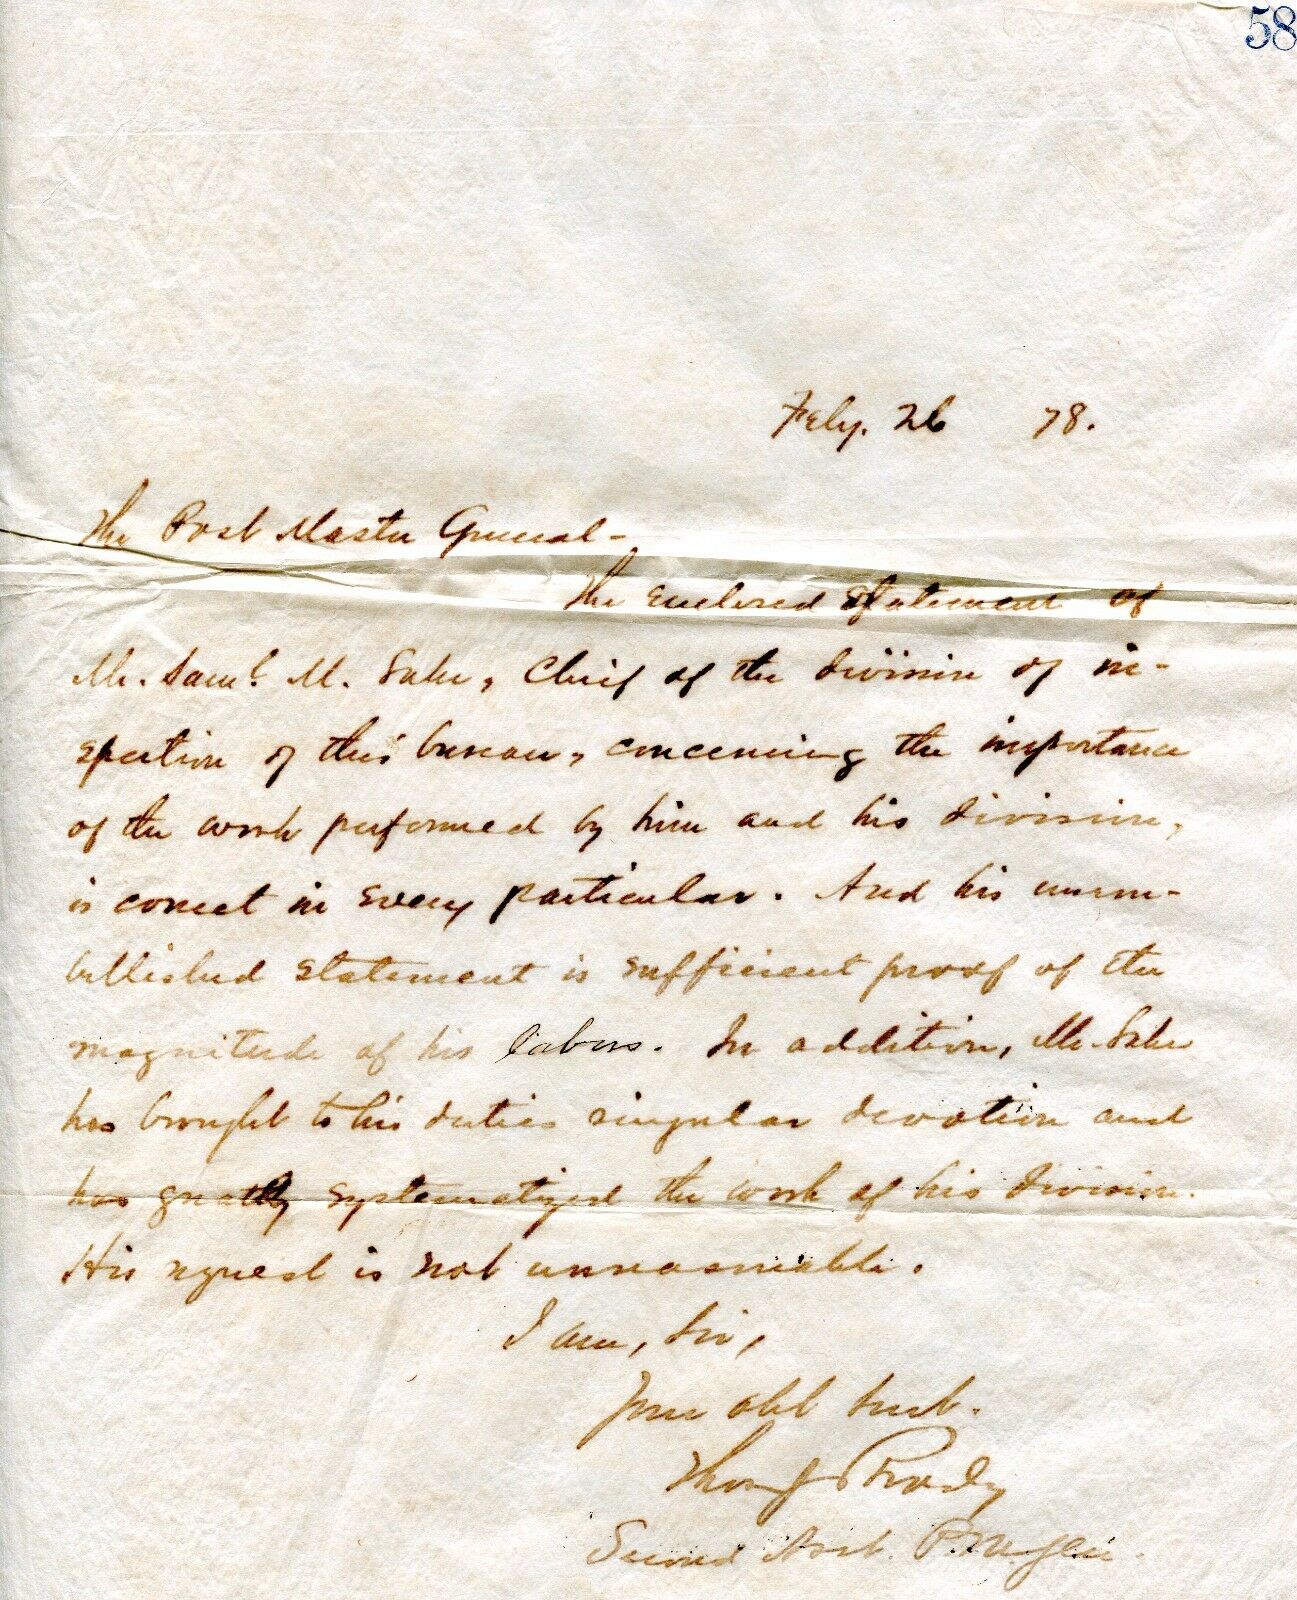 58
Feby. 26 78.
The Post Master General-
The enclosed statement of
Mr. Saml. M. Lake, Chief of the division of in-
spection of this bureau, concerning the importance
of the work performed by him and his division,
is correct in every particular. And his unem-
bellished statement is sufficient proof of the
magnitude of his labors. In addition, Mr. Lake
has brought to his duties singular devotion and
has greatly systematized the work of his division.
His request is not unreasonable.
I am, Sir,
Your obt Servt.
Thos J Brady
Second Asst. P. M. Gen.